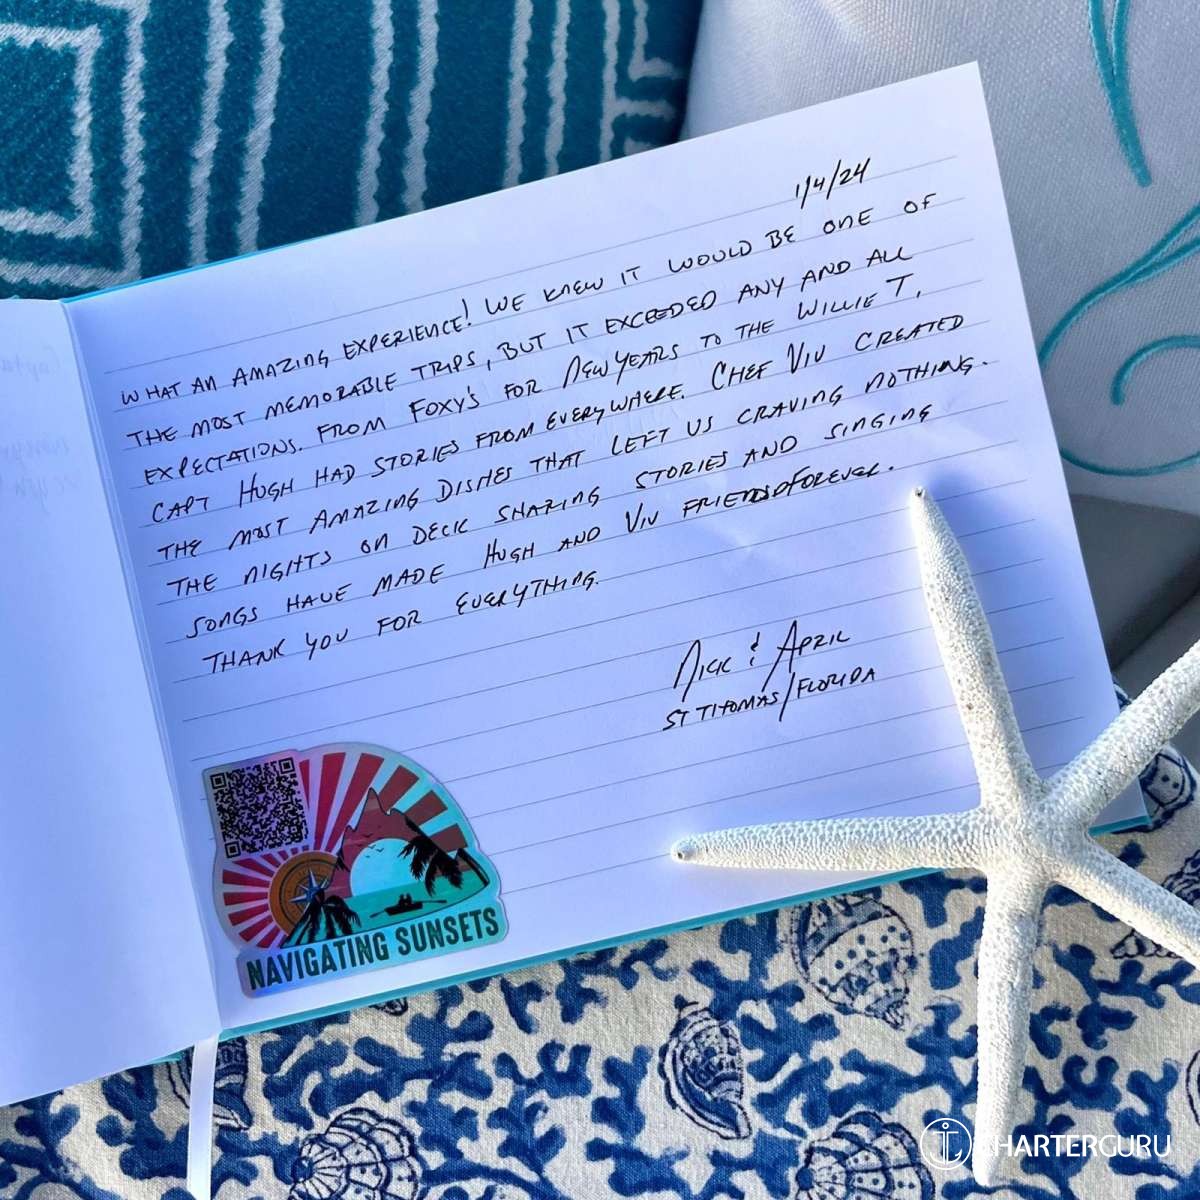 1/4/24
WHAT AN AMAZING EXPERIENCE! WE KNEW IT WOULD BE ONE OF
THE MOST MEMORABLE TRIPS, BUT IT EXCEEDED ANY AND ALL
EXPECTATIONS. FROM FOXY'S FOR NEW YEARS TO THE WILLIE T,
CAPT HUGH HAD STORIES FROM EVERYWHERE. CHEF VIV CREATED
THE MOST AMAZING DISHES THAT LEFT US CRAVING NOTHING.
THE NIGHTS ON DECK SHARING STORIES AND SINGING
SONGS HAVE MADE HUGH AND VIV FRIENDS FOREVER.
THANK YOU FOR EVERYTHING.
NICK & APRIL
ST THOMAS/FLORIDA
NAVIGATING SUNSETS
CHARTERGURU